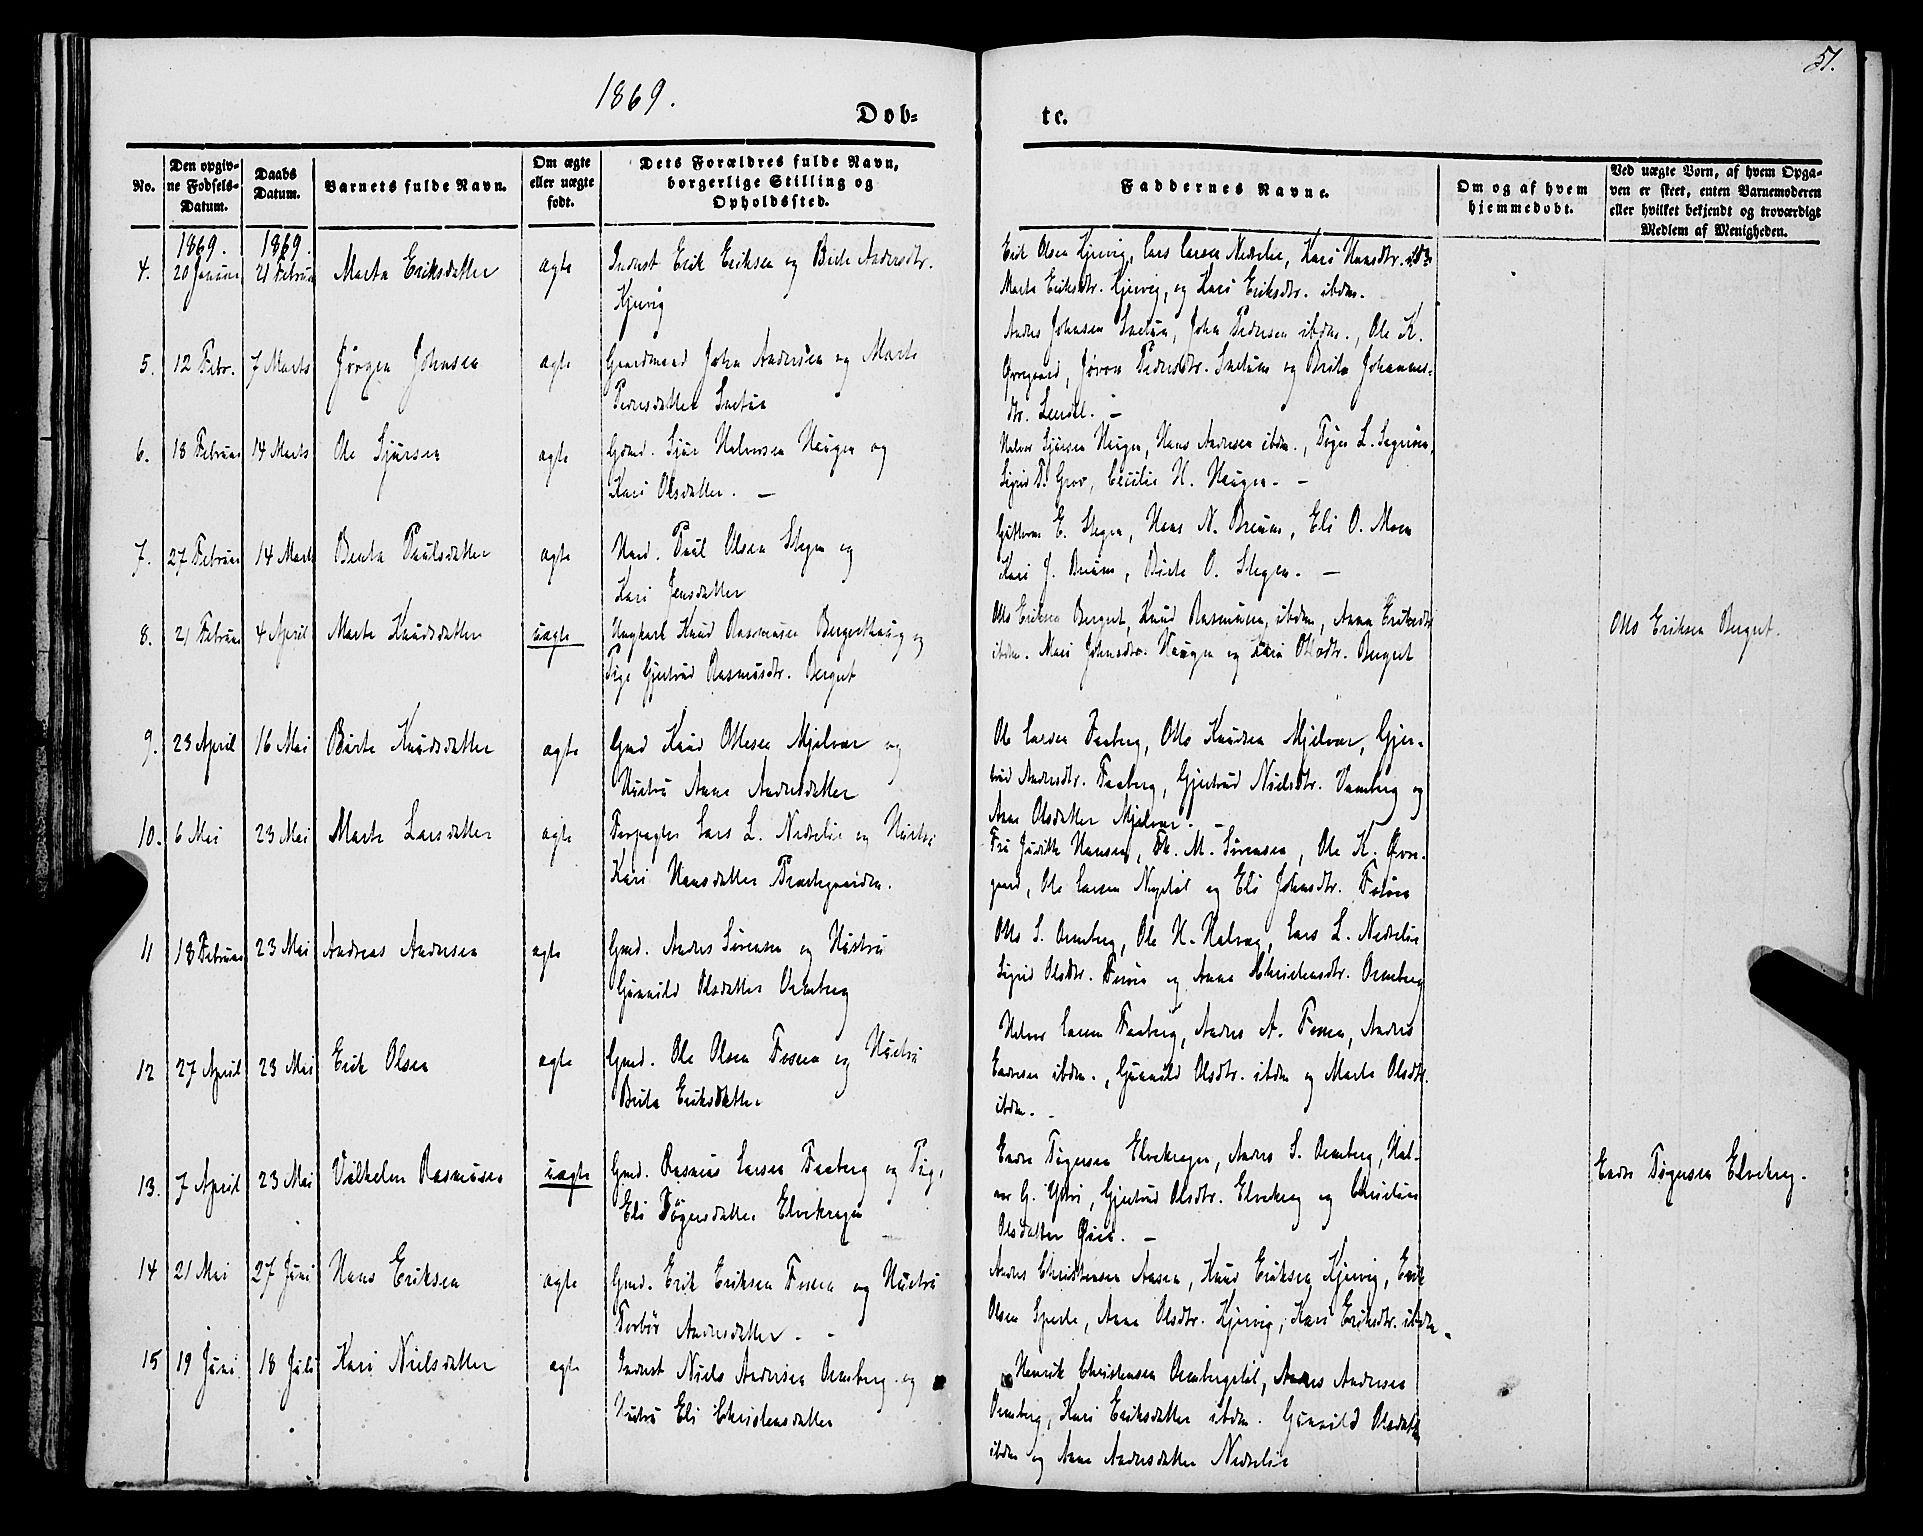 51.
1869.
Dob= te.
No.
Den opgiv-
ne Fodsels-
Datum.
Daabs
Datum.
Barnets fulde Navn.
Om ægte
eller uægte
fodt.
Dets Forældres fulde Navn,
borgerlige Stilling og
Opholdssted.
Faddernes Navne.
Om og af hvem
hjemmedobt.
Ved uægte Born, af hvem Opga-
ven er skeet, enten Barnemoderen
eller hvilket bekjendt og troværdigt
Medlem af Menigheden.
1869. 1869.
4. 20 Januar 21 Februar Marta Eriksdatter ægte Inderst Erik Eriksen og Birte Andersdtr.
Kjervig
Erik Olsen Kjervig, Lars Larsen Nedrelie, Kari Hansdtr. ibdm
Marta Eriksdtr. Kjervig, og Kari Eriksdtr. ibdm.
5. 12 Febr. 7 Marts Jørgen Johnsen ægte Gaardmand John Andersen og Marte
Pedersdatter
Anders Johnsen, John Pedersen ibdm., Ole K.
Øvregaard, Pedersdtr. og Brita Johannes-
dtr.
6. 18 Februar 14 Marts Ole Sjursen ægte Gdmd. Sjur Halvorsen Haugen og
Kari Olsdatter. —
Halvor Sjursen Haugen, Hans Andersen ibdm., Tøger L.
Sigrid T. Grov, Cecilie H. Haugen. —
7. 27 Februar 14 Marts Benta Paulsdatter ægte Huusmd. Paul Olsen Stegen og
Kari Jensdatter
E. Stegen, Hans N. Breum, Eli O. Moen
Kari J. Breum, Birte O. Stegen. —
8. 21 Februar 4 April Marte Knudsdatter uægte Ungkarl Knud Rasmusen Bergsethaug og
Pige Gjertrud Rasmusdtr. Bergset
Otto Eriksen Bergset, Knud Rasmusen, ibdm, Anna Eriksdtr
ibdm. Mari Johnsdtr. Haugen og Kari Ottosdtr. Bergset
Otto Eriksen Bergset.
9. 23 April 16 Mai Birte Knudsdatter ægte Gmd Knud Ottesen Mjelvær og
Hustru Anna Andersdatter
Ole Larsen Faaberg, Otto Knudsen Mjelvær, Gjer-
trud Andersdtr. Faaberg, Gjertrud Nielsdtr. Vanberg og
Anne Olsdatter Mjelvær. —
10. 6 Mai 23 Mai Marte Larsdatter ægte Forpagter Lars L. Nedrelie og Hustru
Kari Hansdatter Præstegaarden.
Fru Judith Hansen, Th. M. Sørensen, Ole K. Øvre-
gaard, Ole Larsen og Eli Johnsdtr.
11 18 Februar 23 Mai Andreas Andersen ægte Gmd. Anders Sørensen og Hustru
Gunnild Olsdatter Ormberg
Otto S. Ormberg, Ole H., Lars L. Nedrelie
Sigrid Olsdtr. og Anna Christensdtr. Ormberg
12 27 April 23 Mai Erik Olsen ægte Gmd. Ole Olsen Fossen og Hustru
Brita Eriksdatter
Halvor Larsen Faaberg, Anders A. Fossen, Anders
Endresen ibdm., Gunnild Olsdtr. ibdm og Marta Olsdtr.
ibdm. —
13. 7 April 23 Mai Vilhelm Rasmusen uægte Gmd. Rasmus Larsen Faaberg og Pig.
Eli Tøgersdatter Elvekragen
Endre Tøgersen Elvekragen, Anders S. Ormberg, Hal-
vor G., Gjertrud Olsdtr. Elvekrag og Christine
Olsdatter. —
Endre Tøgersen Elvekrag.
14 21 Mai 27 Juni Hans Eriksen ægte Gmd. Erik Eriksen Fossen og Hustru
Torbør Andersdatter. -
Anders Christensen Aasen, Knud Eriksen Kjervig, Erik
Olsen Sperle, Anna Olsdtr. Kjervig, Kari Eriksdtr. ibdm.
15 19 Juni 18 Juli Kari Nielsdatter ægte Inderst Niels Andersen Ormberg og
Hustru Eli Christensdatter
Henrik Christensen Ormbergstøl, Anders Andersen
Ormberg, Kari Eriksdatter ibdm. Gunnild Olsdatter
ibdm og Anna Andersdatter Nedrelie